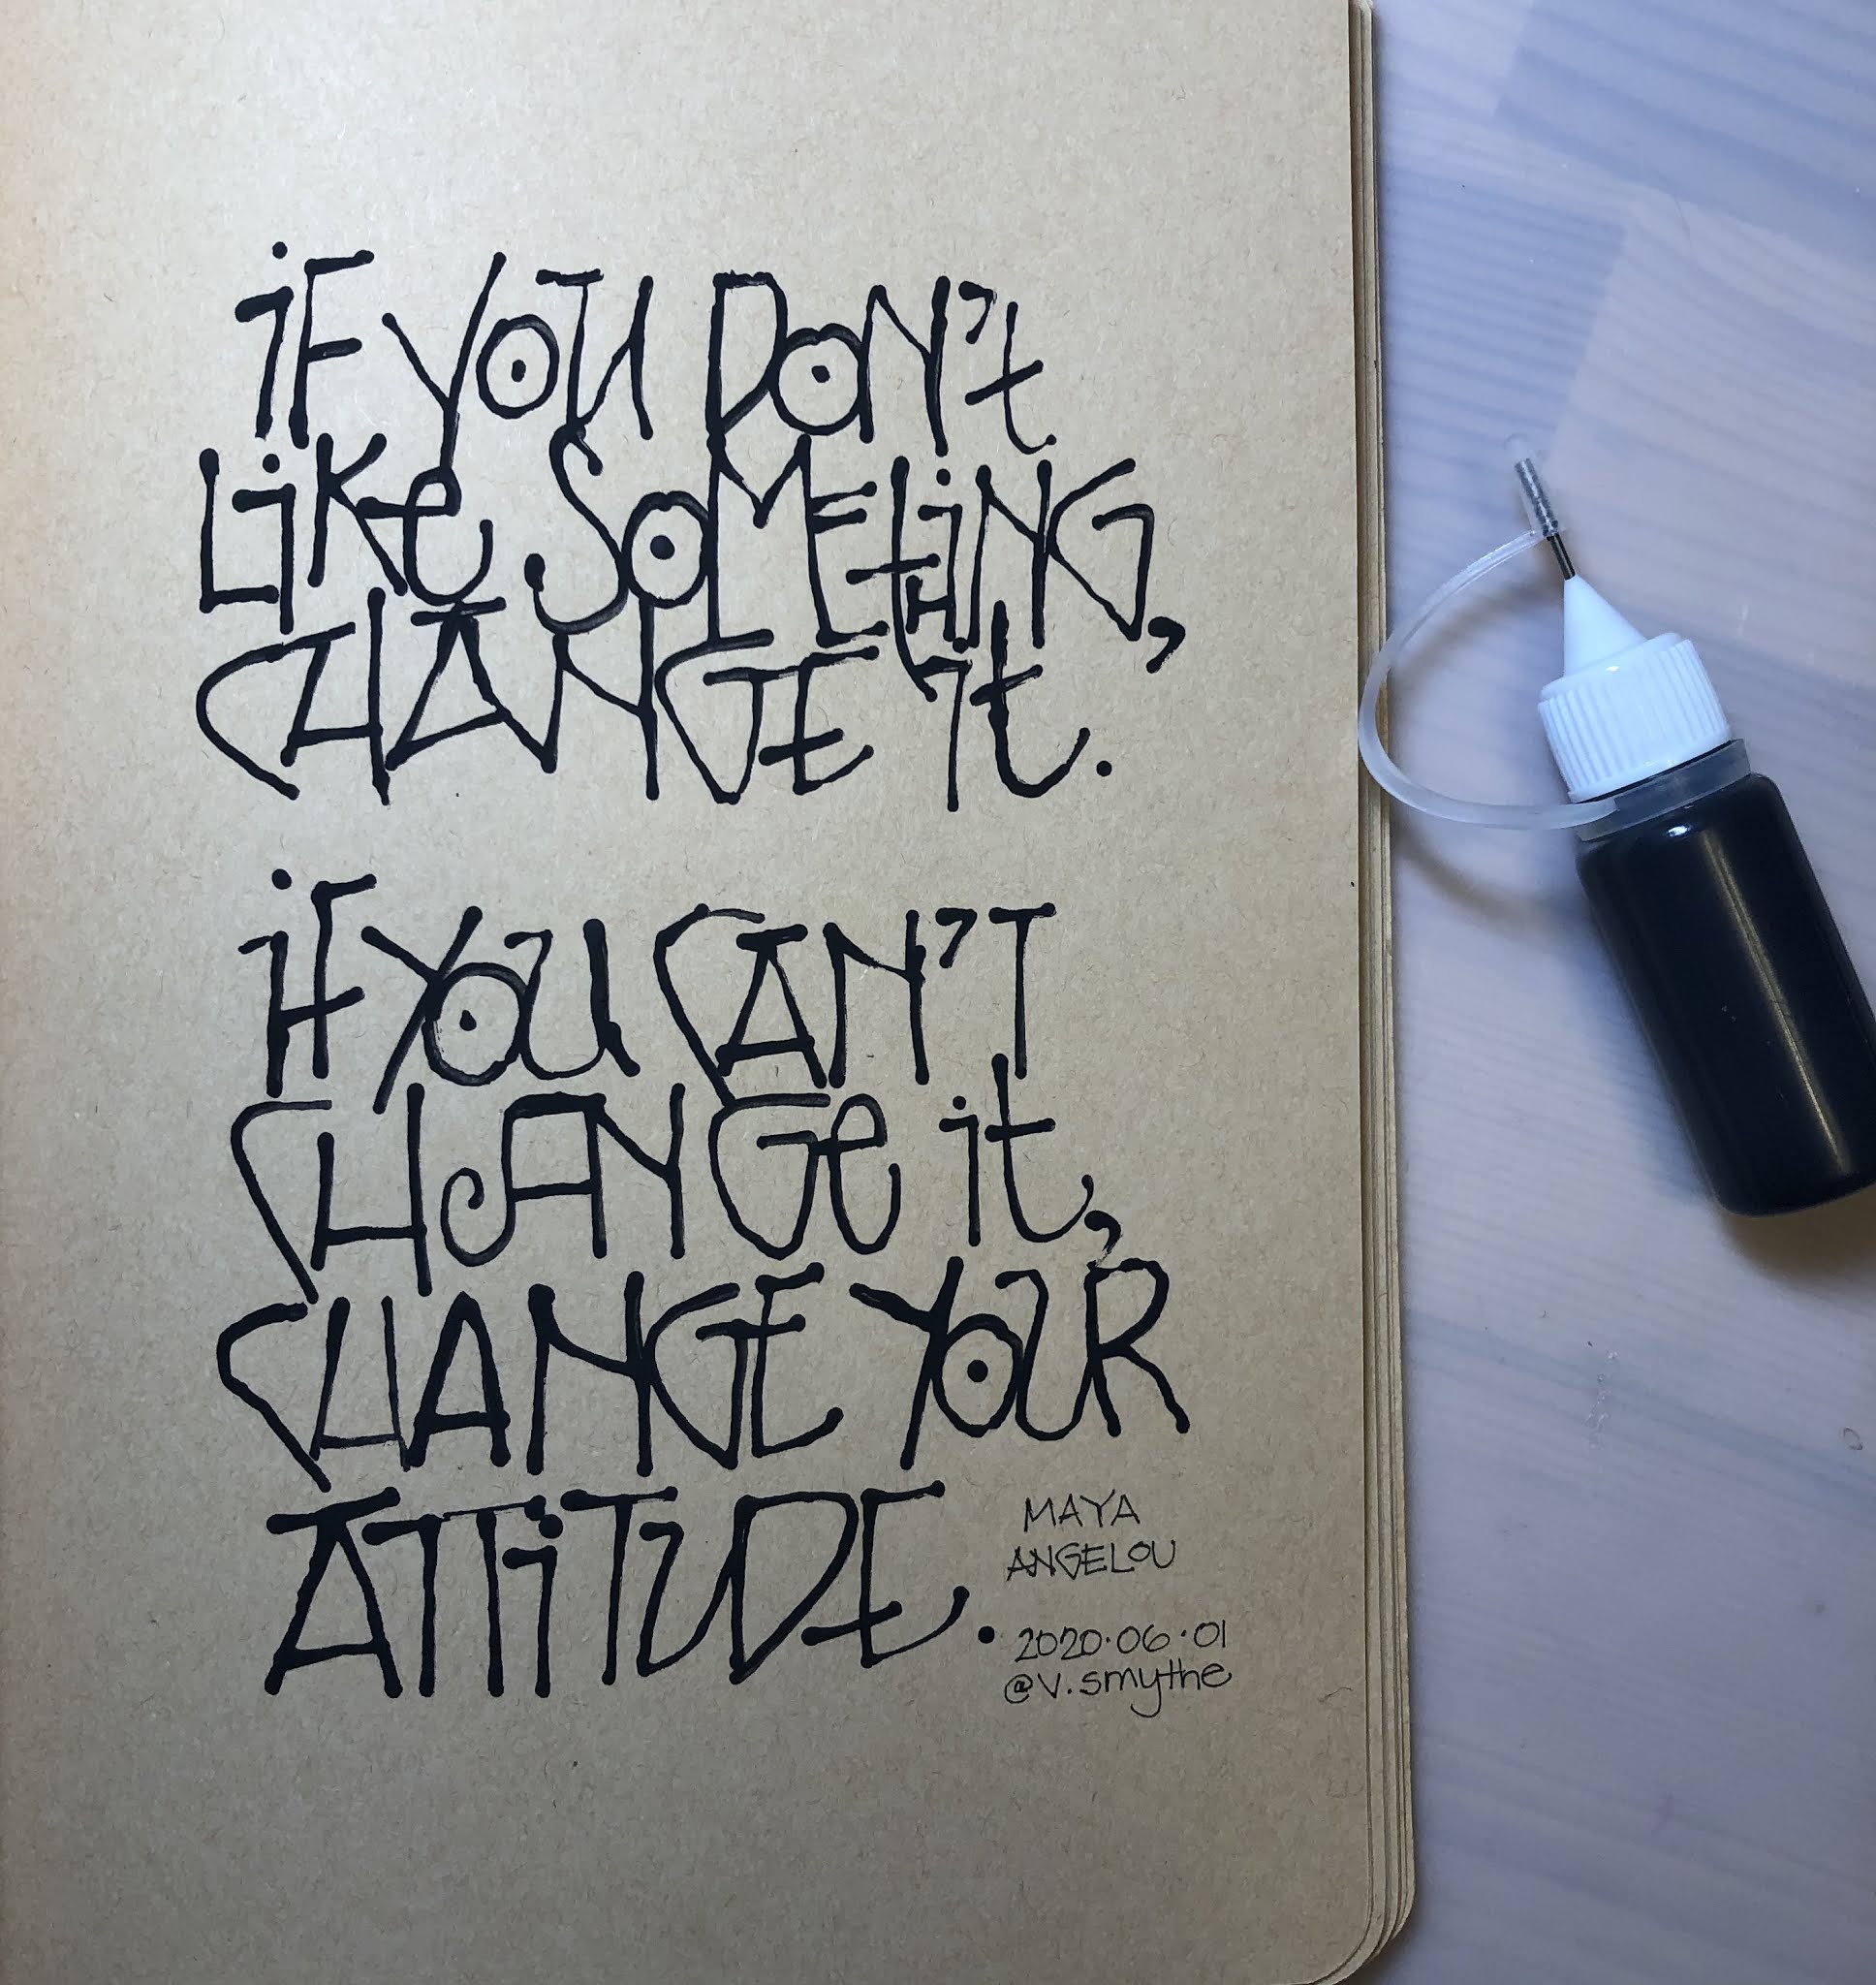 iF yOU DON't
LiKe SOMEtHiNG,
CHANGE it.
iF YOU CAN'T
CHANGe it,
CHANGE YOUR
ATTiTUDE.
MAYA
ANGELOU
2020·06·01
@v.smythe